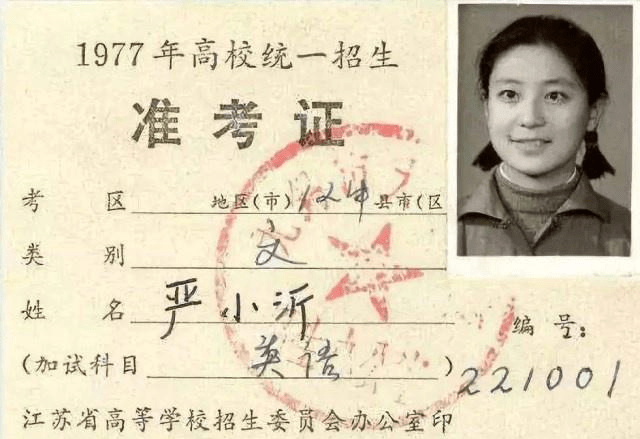 1977年高校统一招生
准考证
考 区 地区(市)12中县市(区
类 别 文
姓 名 严小沂
编 号:
(加试科目 英语)
221001
江苏省高等学校招生委员会办公室印